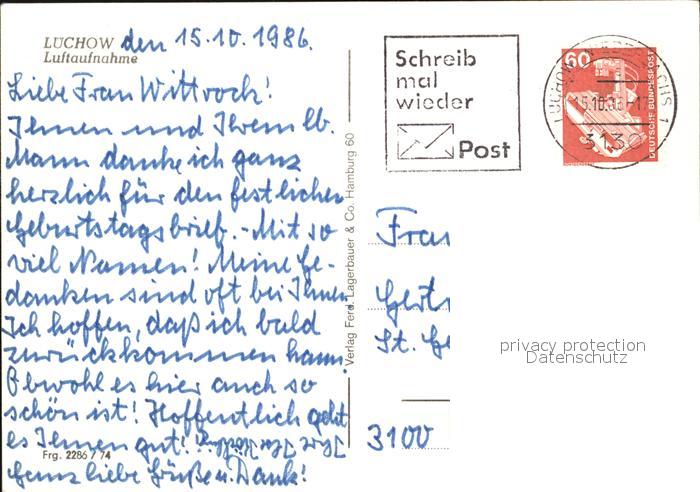 LÜCHOW den 15.10.1986.
Luftaufnahme
Liebe Frau Wittrock!
Ihnen und Ihrem lb.
Mann danke ich ganz
herzlich für den festlichen
Geburtstagsbrief. - Mit so
viel Namen! Meine Ge-
danken sind oft bei Ihnen.
Ich hoffen, daß ich bald
zurückkommen kann.
Obwohl es hier auch so
schön ist! Hoffentlich geht
es Ihnen gut!
Ganz liebe Grüße u. Dank!
Frg. 2286 / 74
Verlag Ferd. Lagerbauer & Co. Hamburg 60
Schreib
mal
wieder
Post
60
DEUTSCHE BUNDESPOST
3130
Frau
St. Ge
3100
privacy protection
Datenschutz